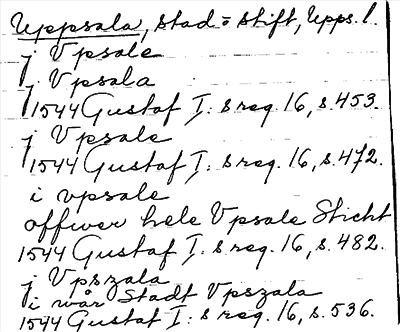 Uppsala, stad o stift, Upps. l.
j Vpsale
j Vpsala
1544 Gustaf I: s reg. 16, s. 453.
j Vpsale
1544 Gustaf I: s reg. 16, s. 472.
i vpsale
offwer hele Vpsale Sticht
1544 Gustaf I: s reg. 16, s. 482.
j Vpszala
i wår Stadt Vpszala
1544 Gustaf I: s reg. 16, s. 536.